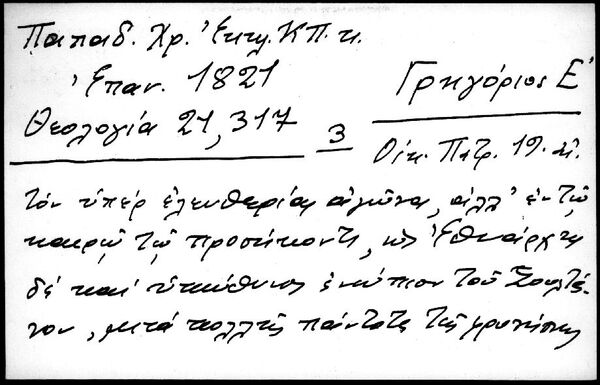 Παπαδ. Χρ. Ἐκκλ. ΚΠ. κ.
Ἐπαν. 1821
Γρηγόριος Ε'
Θεολογία 21, 317
3
Οἰκ. Πατρ. 19. αἰ.
τόν ὑπέρ ἐλευθερίας ἀγῶνα, ἀλλ' ἐν τῷ
καιρῷ τῷ προσήκοντι, ὡς Ἐθνάρχης
δέ καί ὑπεύθυνος ἐνώπιον τοῦ Σουλτά-
νου, μετά πολλῆς πάντοτε τῆς φρονήσεως